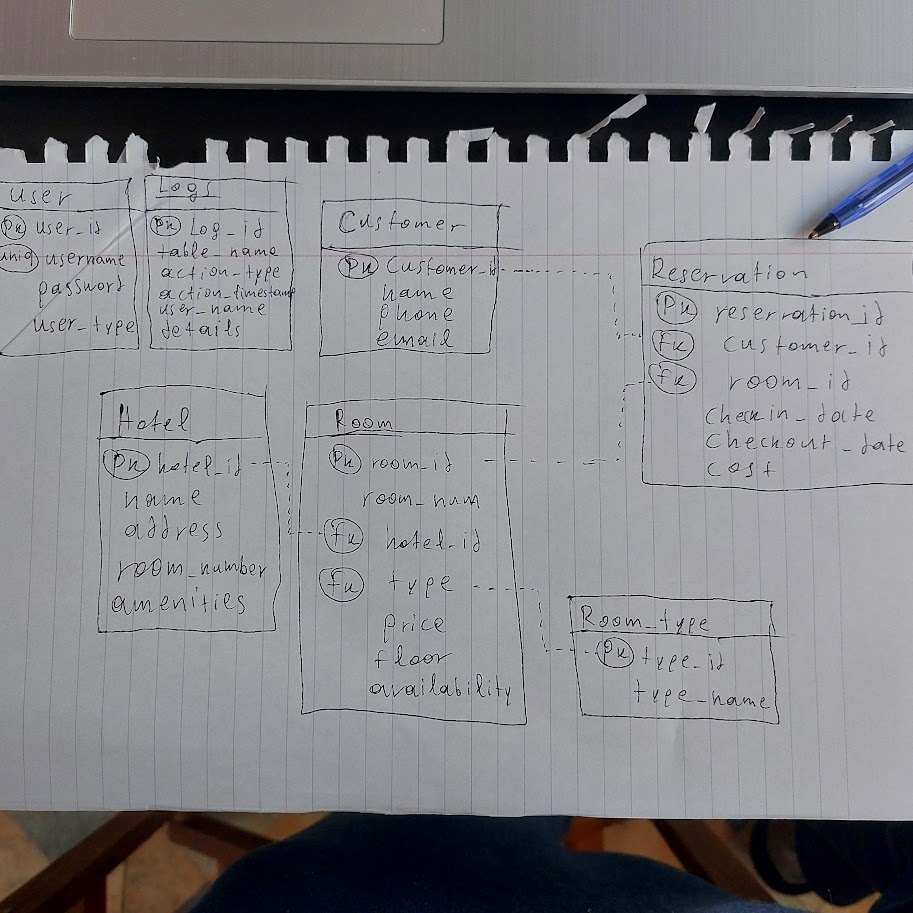 User
Pk user_id
uniq username
password
user_type
Logs
Pk Log_id
table_name
action_type
action_timestamp
user_name
details
Customer
Pk Customer_id
name
phone
email
Reservation
Pk reservation_id
Fk Customer_id
Fk room_id
Checkin_date
Checkout_date
cost
Hotel
Pk hotel_id
name
address
room_number
amenities
Room
Pk room_id
room_num
Fk hotel_id
Fk type
price
floor
availability
Room_type
Pk type_id
type_name